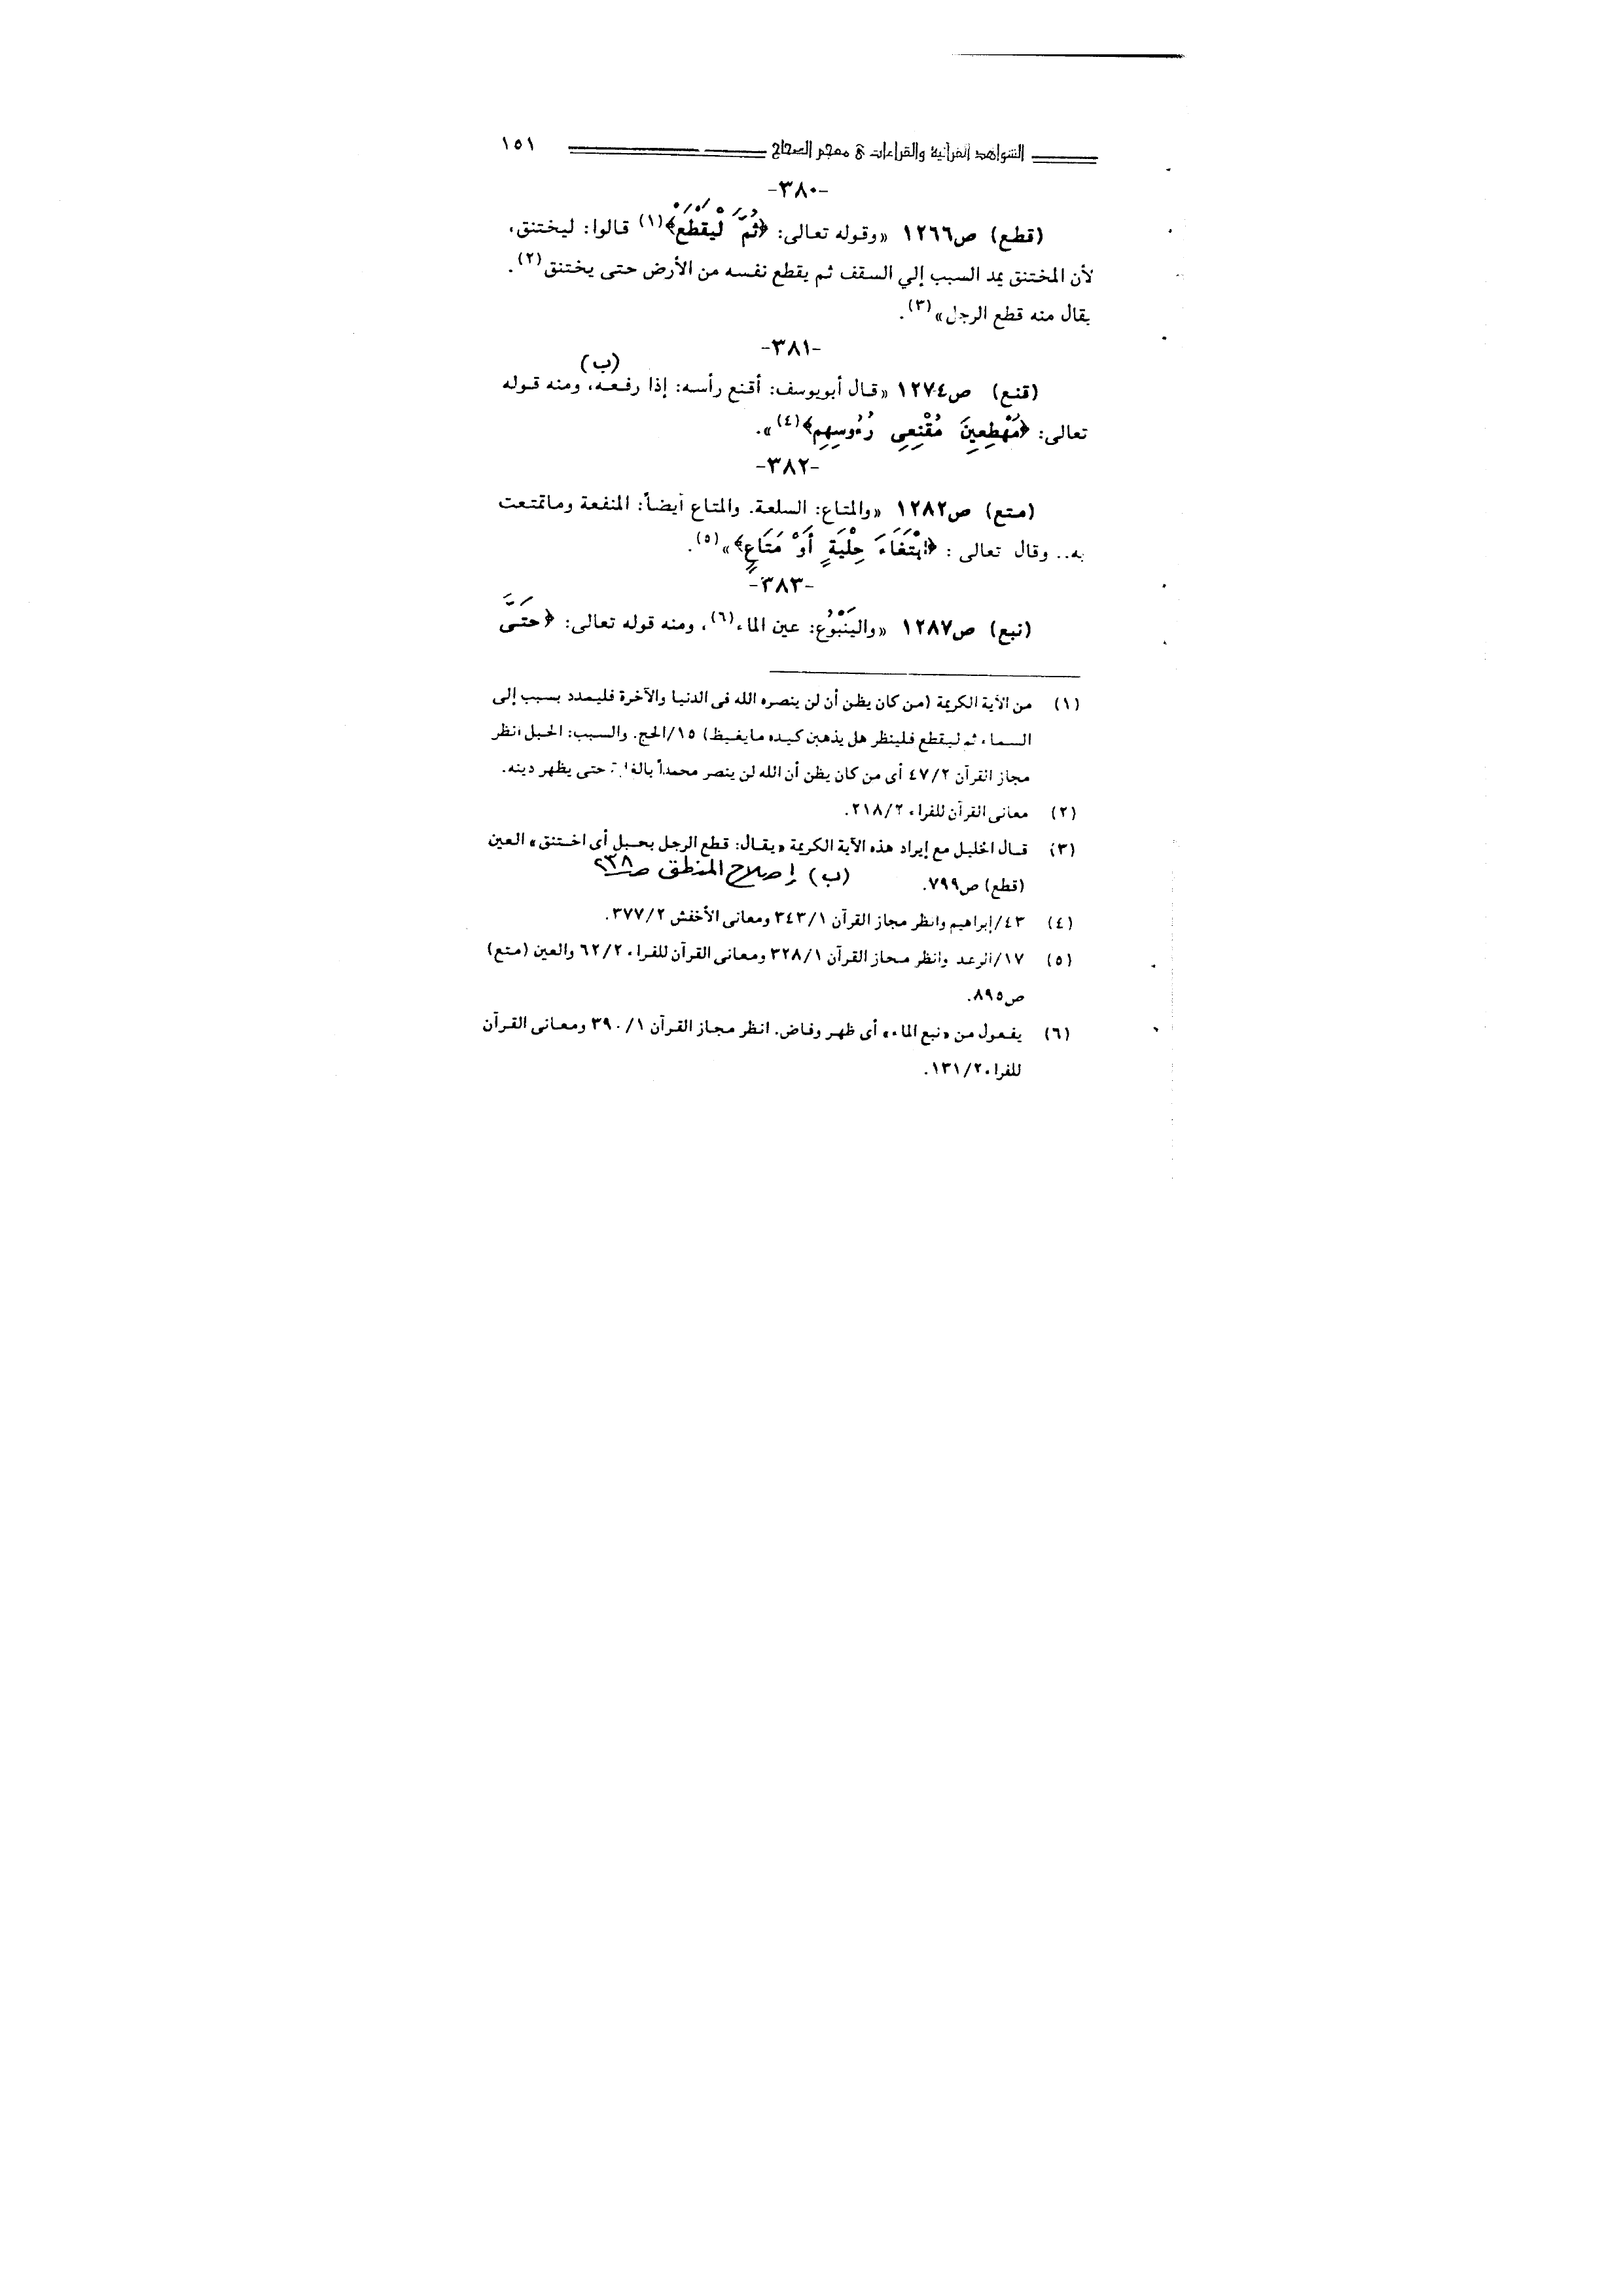 الشواهد القرآنية والقراءات في معجم الصحاح ١٥١
-٣٨٠-
(قطع) ص١٢٦٦ «وقوله تعالى: ﴿ثُمَّ لْيَقْطَعْ﴾(١) قالوا: ليختنق،
لأن المختنق يمد السبب إلي السقف ثم يقطع نفسه من الأرض حتى يختنق(٢).
يقال منه قطع الرجل»(٣).
-٣٨١-
(ب)
(قنع) ص١٢٧٤ «قال أبويوسف: أقنع رأسه: إذا رفعه، ومنه قوله
تعالى: ﴿مُهْطِعِينَ مُقْنِعِى رُءُوسِهِم﴾(٤)».
-٣٨٢-
(متع) ص١٢٨٢ «والمتاع: السلعة. والمتاع أيضاً: المنفعة وماتمتعت
به.. وقال تعالى: ﴿ابْتَغَاءَ حِلْيَةٍ أَوْ مَتَاعٍ﴾»(٥).
-٣٨٣-
(نبع) ص١٢٨٧ «والْيَنْبُوُع: عين الماء(٦)، ومنه قوله تعالى: ﴿حَتَّى
(١) من الآية الكريمة (من كان يظن أن لن ينصره الله فى الدنيا والآخرة فليمدد بسبب إلى
السماء ثم ليقطع فلينظر هل يذهبن كيده مايغيظ) ١٥/الحج. والسبب: الحبل انظر
مجاز القرآن ٤٧/٢ أى من كان يظن أن الله لن ينصر محمداً حتى يظهر دينه.
(٢) معانى القرآن للفراء ٢١٨/٢.
(٣) قال الخليل مع إيراد هذه الآية الكريمة «يقال: قطع الرجل بحبل أى اختنق» العين
(قطع) ص٧٩٩. (ب) إصلاح المنطق ص٢٣٨
(٤) ٤٣/إبراهيم وانظر مجاز القرآن ٣٤٣/١ ومعانى الأخفش ٣٧٧/٢.
(٥) ١٧/الرعد وانظر مجاز القرآن ٣٢٨/١ ومعانى القرآن للفراء ٦٢/٢ والعين (متع)
ص٨٩٥.
(٦) يفعول من «نبع الماء» أى ظهر وفاض. انظر مجاز القرآن ٣٩٠/١ ومعانى القرآن
للفراء ١٣١/٢.